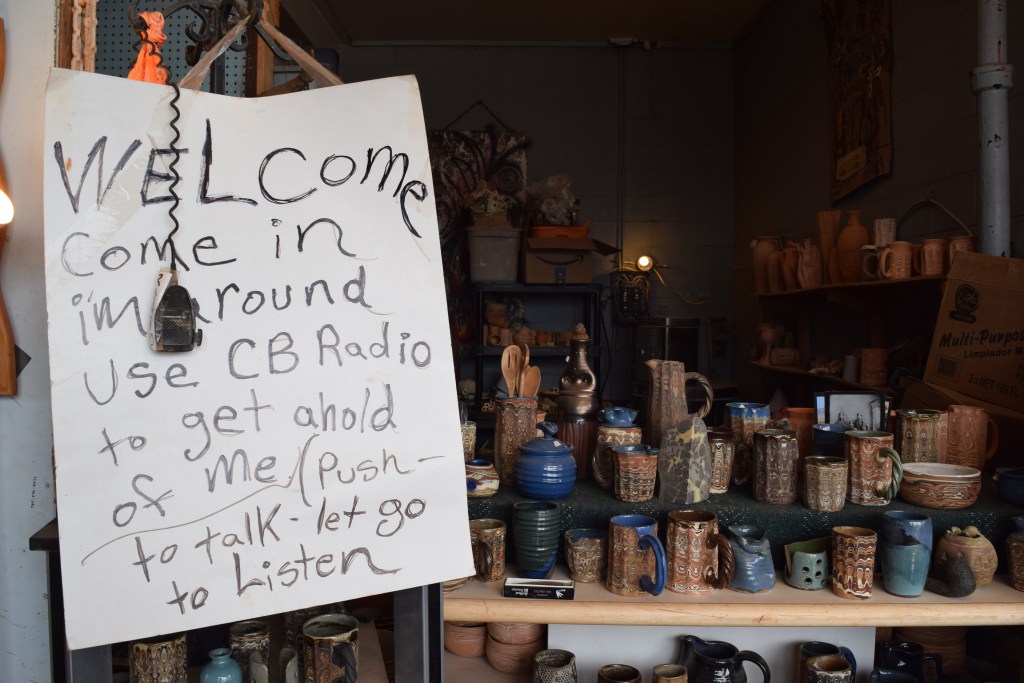 WELCome
Come in
im around
Use CB Radio
to get ahold
of me (Push-
to talk - let go
to Listen
Multi-Purpos
Limpiador M